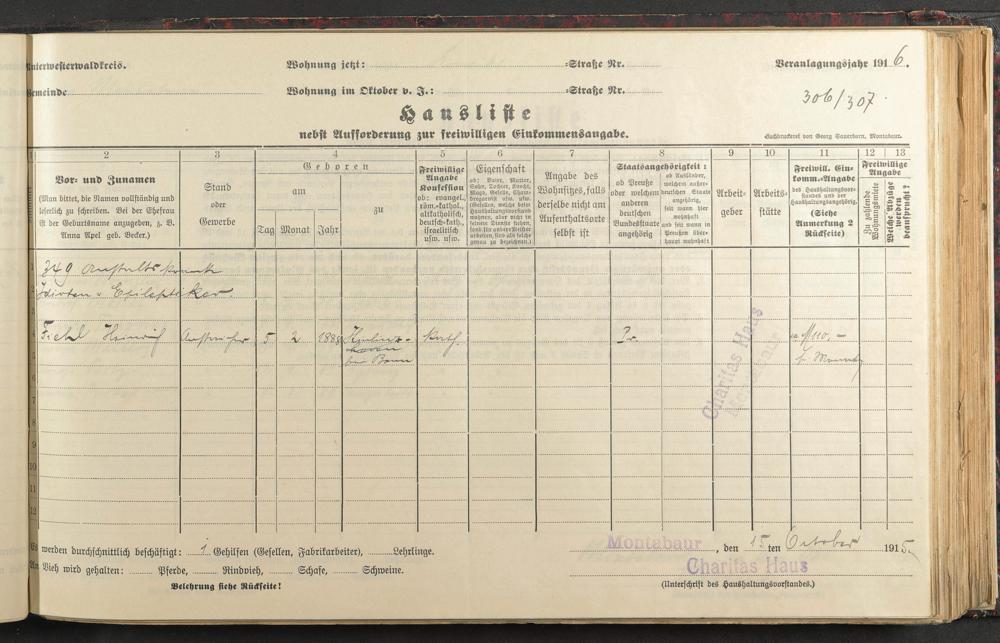 Unterwesterwaldkreis.
Wohnung jetzt: =Straße Nr.
Veranlagungsjahr 1916.
Gemeinde
Wohnung im Oktober v. J.: =Straße Nr.
306/307.
Hausliste
nebst Aufforderung zur freiwilligen Einkommensangabe.
Buchdruckerei von Georg Sauerborn, Montabaur.
2 3 4 5 6 7 8 9 10 11 12 13
Vor- und Zunamen
(Man bittet, die Namen vollständig und
leserlich zu schreiben. Bei der Ehefrau
ist der Geburtsname anzugeben, z. B.
Anna Apel geb. Becker.)
Stand
oder
Gewerbe
Geboren
am
zu
Tag Monat Jahr
Freiwillige
Angabe
Konfession
ob: evangel.,
röm.-kathol.,
altkatholisch,
deutsch-kath.,
israelitisch
usw. usw.
Eigenschaft
ob: Vater, Mutter,
Sohn, Tochter, Knecht,
Magd, Geselle, Cham-
bregarnist usw. usw.
Angabe des
Wohnsitzes, falls
derselbe nicht am
Aufenthaltsorte
selbst ist
Staatsangehörigkeit:
ob Preuße
oder welchem
anderen
deutschen
Bundesstaate
angehörig
ob Ausländer,
welchem außer-
deutschen Staate
angehörig,
seit wann hier
wohnhaft
und seit wann in
Preußen über-
haupt wohnhaft
Arbeit-
geber
Arbeits-
stätte
Freiwill. Ein-
komm.-Angabe
des Haushaltungsvor-
standes und der
Haushaltungsangehörig.
(Siehe
Anmerkung 2
Rückseite)
Freiwillige
Angabe
Zu zahlende
Wohnungsmiete
Welche Abzüge
werden
beansprucht?
349 Anstaltskranke
Idioten u. Epileptiker.
Heinrich 5 2 1888
bei Bonn
kath. Pr.
Charitas Haus
Montabaur
Es werden durchschnittlich beschäftigt: 1 Gehilfen (Gesellen, Fabrikarbeiter), Lehrlinge.
An Vieh wird gehalten: Pferde, Rindvieh, Schafe, Schweine.
Belehrung siehe Rückseite!
Montabaur, den 15ten October 1915.
Charitas Haus
(Unterschrift des Haushaltungsvorstandes.)